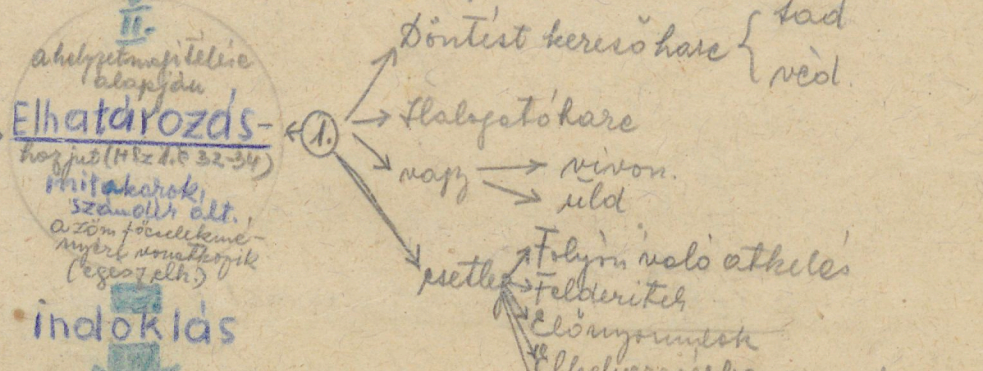 II.
a helyzetmegítélése
alapján
Elhatározás-
hoz jut (HSz 1. é 32-34)
mit akarok,
szándék ált.
a zöm főcselekmé-
nyére vonatkozik
(egész elh.)
indoklás
1.
Döntést kereső harc
tád
véd.
Halogatóharc
vagy
vivon.
üld
esetleg
Folyón való átkelés
Felderítek
Előnyomulok